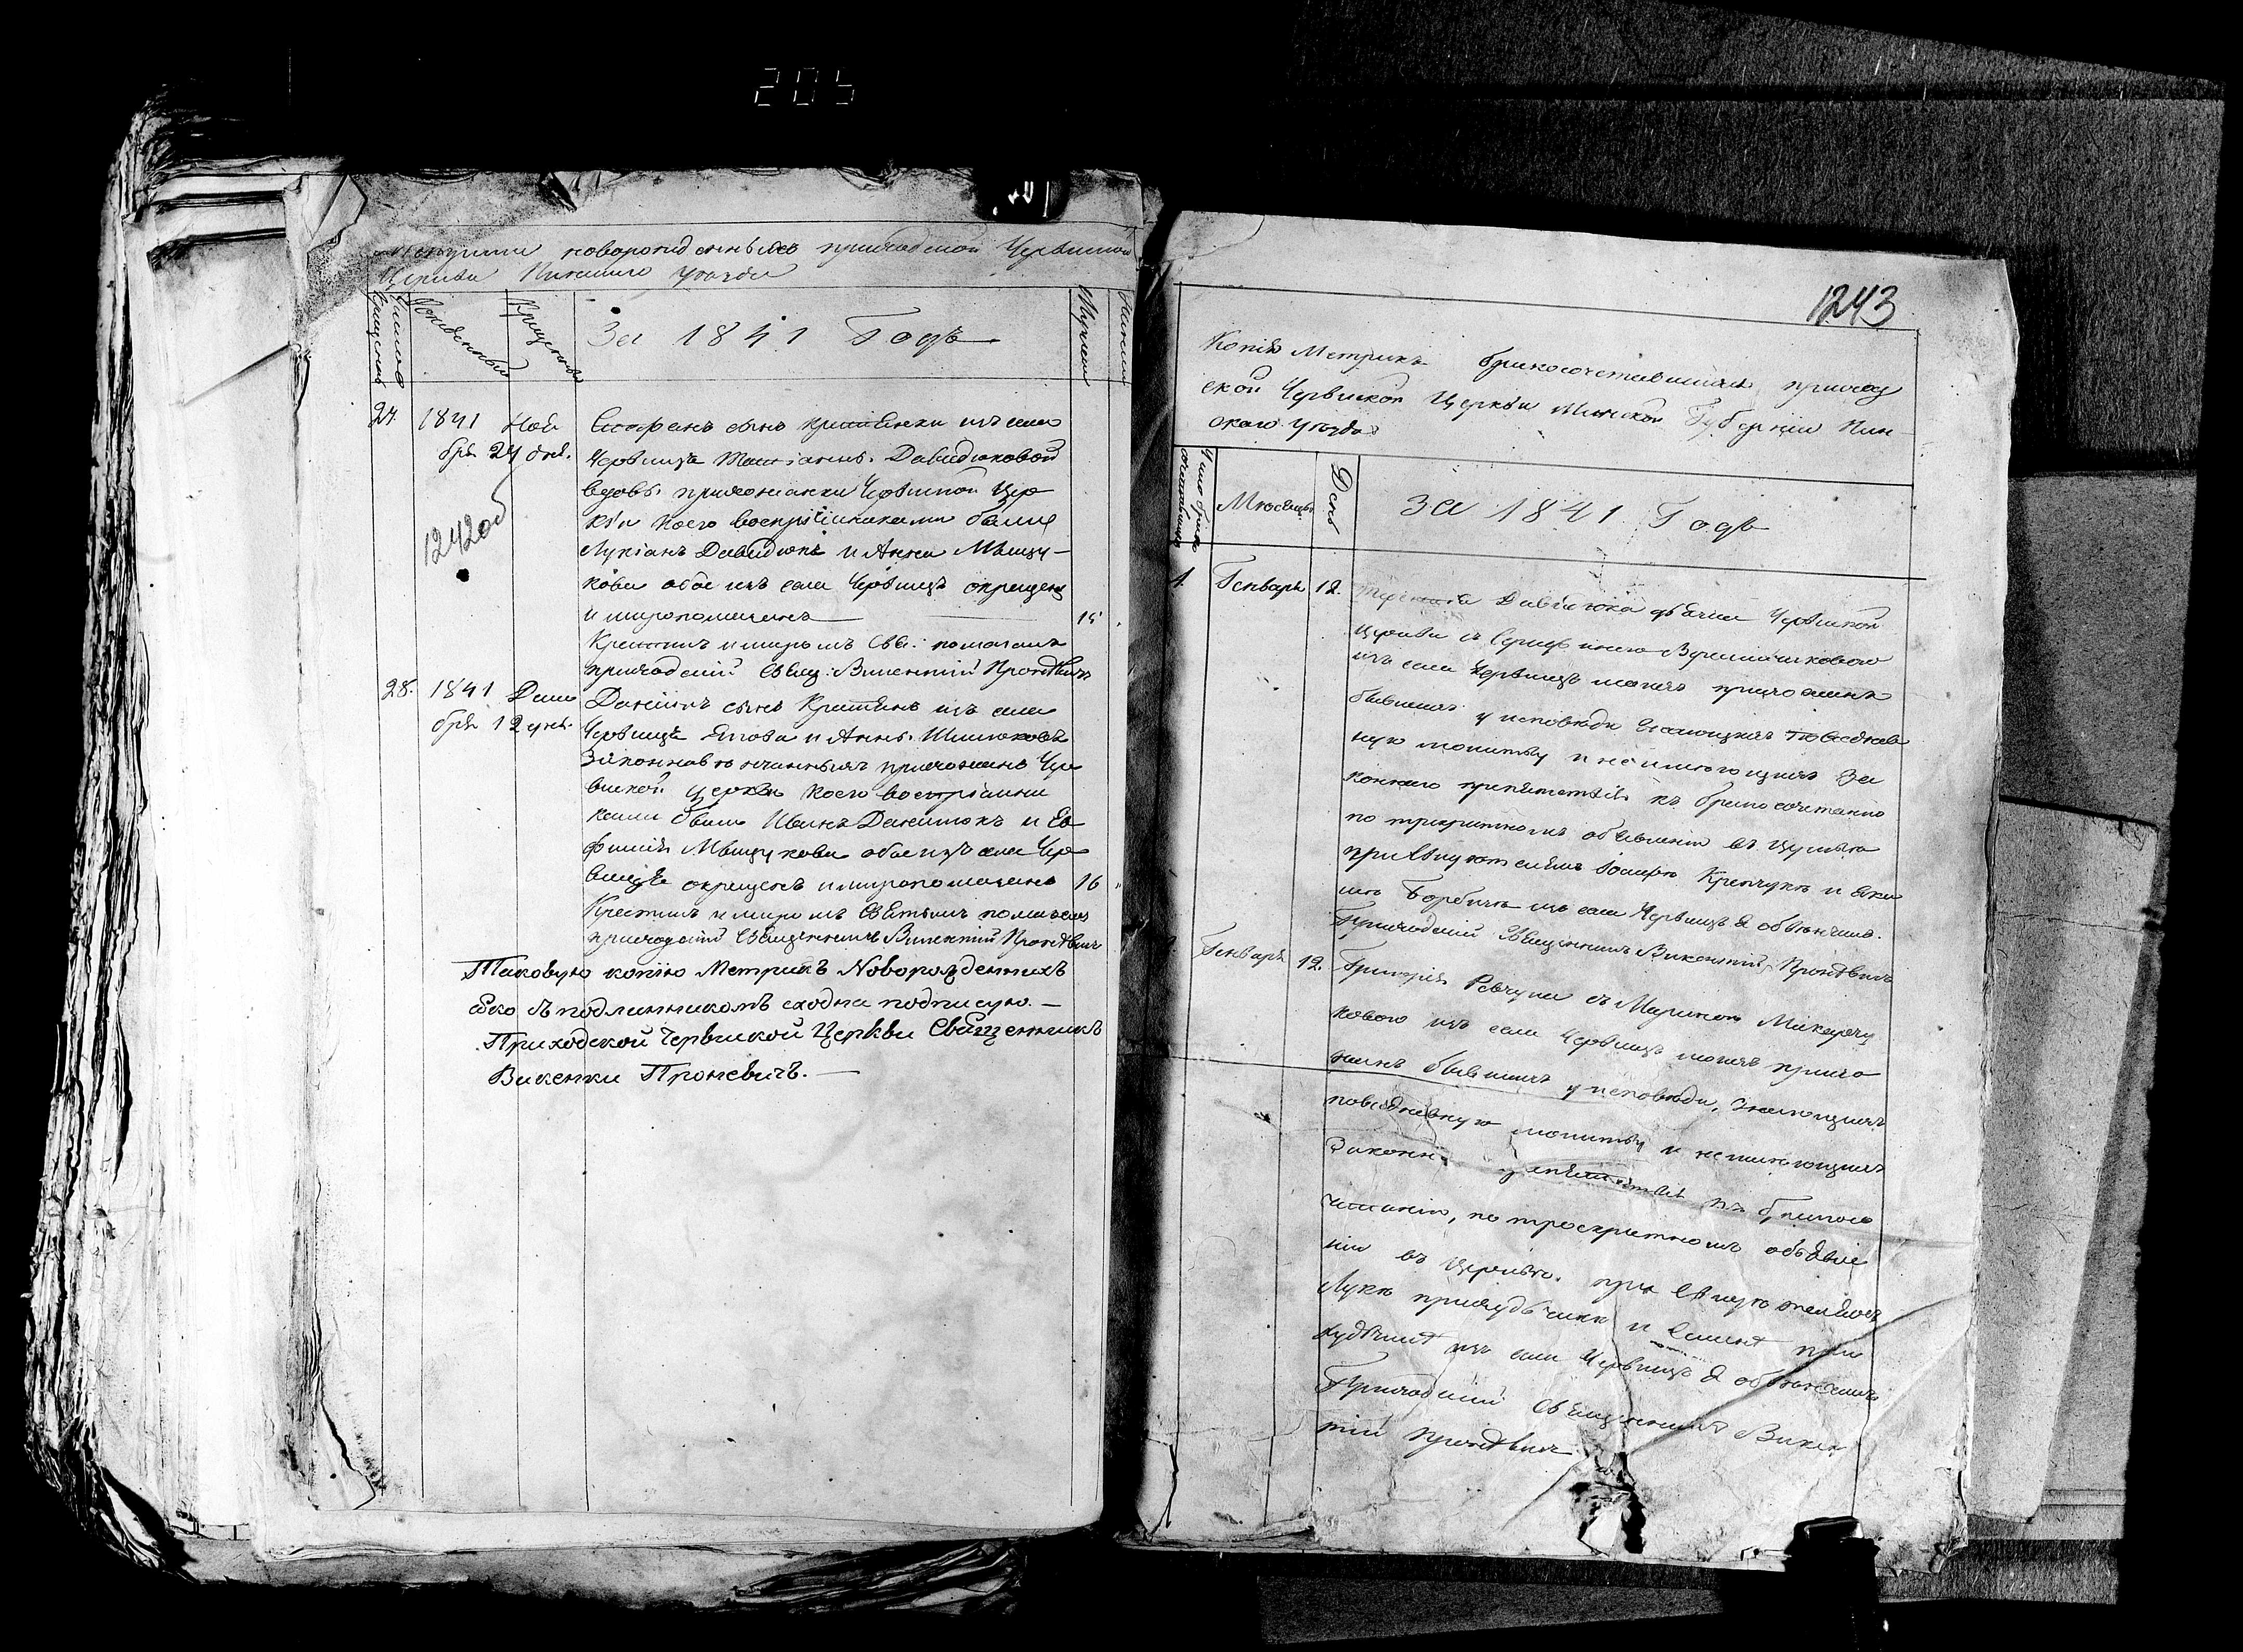 205
новорожденныхъ приходской Червиской
Церкви Пинскаго уезда
Число Крещеныхъ
Рожденныхъ
Крещенны
За 1841 Годъ
Мужеск
Женск
27. 1841 Ноя Стефанъ сынъ крестьянки изъ села
бря 24 дня. Червищъ Давидюковой
вдовы прихожанки Червиской Цер
1242об
кви коего воспріемниками были
Лукіанъ Давидюкъ и Анна Мышу-
кова обое изъ села Червищъ окрещенъ
и миропомазанъ 15
Крестилъ и миромъ Свя: помазалъ
приходскій Свящ: Викентій Проневичъ
28. 1841 Дека Даніилъ сынъ Крестьянъ изъ села
бря 12 дня. Червищъ и Анны
Законновѣнчанныхъ прихожанъ Чер
виской церкви коего воспріемни
ками были Иванъ Данилюкъ и Ев
фимія Мышукова обое изъ села Чер
вищъ окрещенъ и миропомазанъ 16
Крестилъ и миромъ Святымъ помазалъ
приходскій Священникъ Викентій Проневичъ
Таковую копію Метрикъ Новорожденнихъ
яко съ подлинникомъ сходна подписую. —
Приходской Червиской Церкви Священникъ
Викенти Проневичъ. —
1243
Копія Метрикъ бракосочетавшихся приход
ской Червиской Церкви Минской Губерніи Пин-
скаго Уезда
Число брако сочетавшихся
Месяцъ
День
За 1841 Годъ
1. Генварь 12. Давидюка дьячка Червиской
Церкви съ
изъ села Червищъ моихъ прихожанъ
бывшихъ у исповѣди знающихъ повседнев
ную молитву и неимеющихъ За
коннаго препятствія къ бракосочетанію
по трикратномъ объявленіи въ Церкви
при свидетеляхъ Іосифѣ Кревчукѣ и
изъ села Червищъ я обвѣнчалъ.
Приходскій Священникъ Викентій Проневичъ
Генваря 12. Григорія Ревчука съ Мариною Макарчу
ковою изъ села Червищъ моихъ прихо
жанъ бывшихъ у исповѣди, знающихъ
повседневную молитву и неимеющихъ
Законн препятствія къ бракосо
четанію, по троекратномъ объявле
ніи въ Церквѣ. при свидетеляхъ
Лукѣ и при
изъ села Червищъ я обвѣнчалъ
Приходскій Священникъ Викен
тій Проневичъ